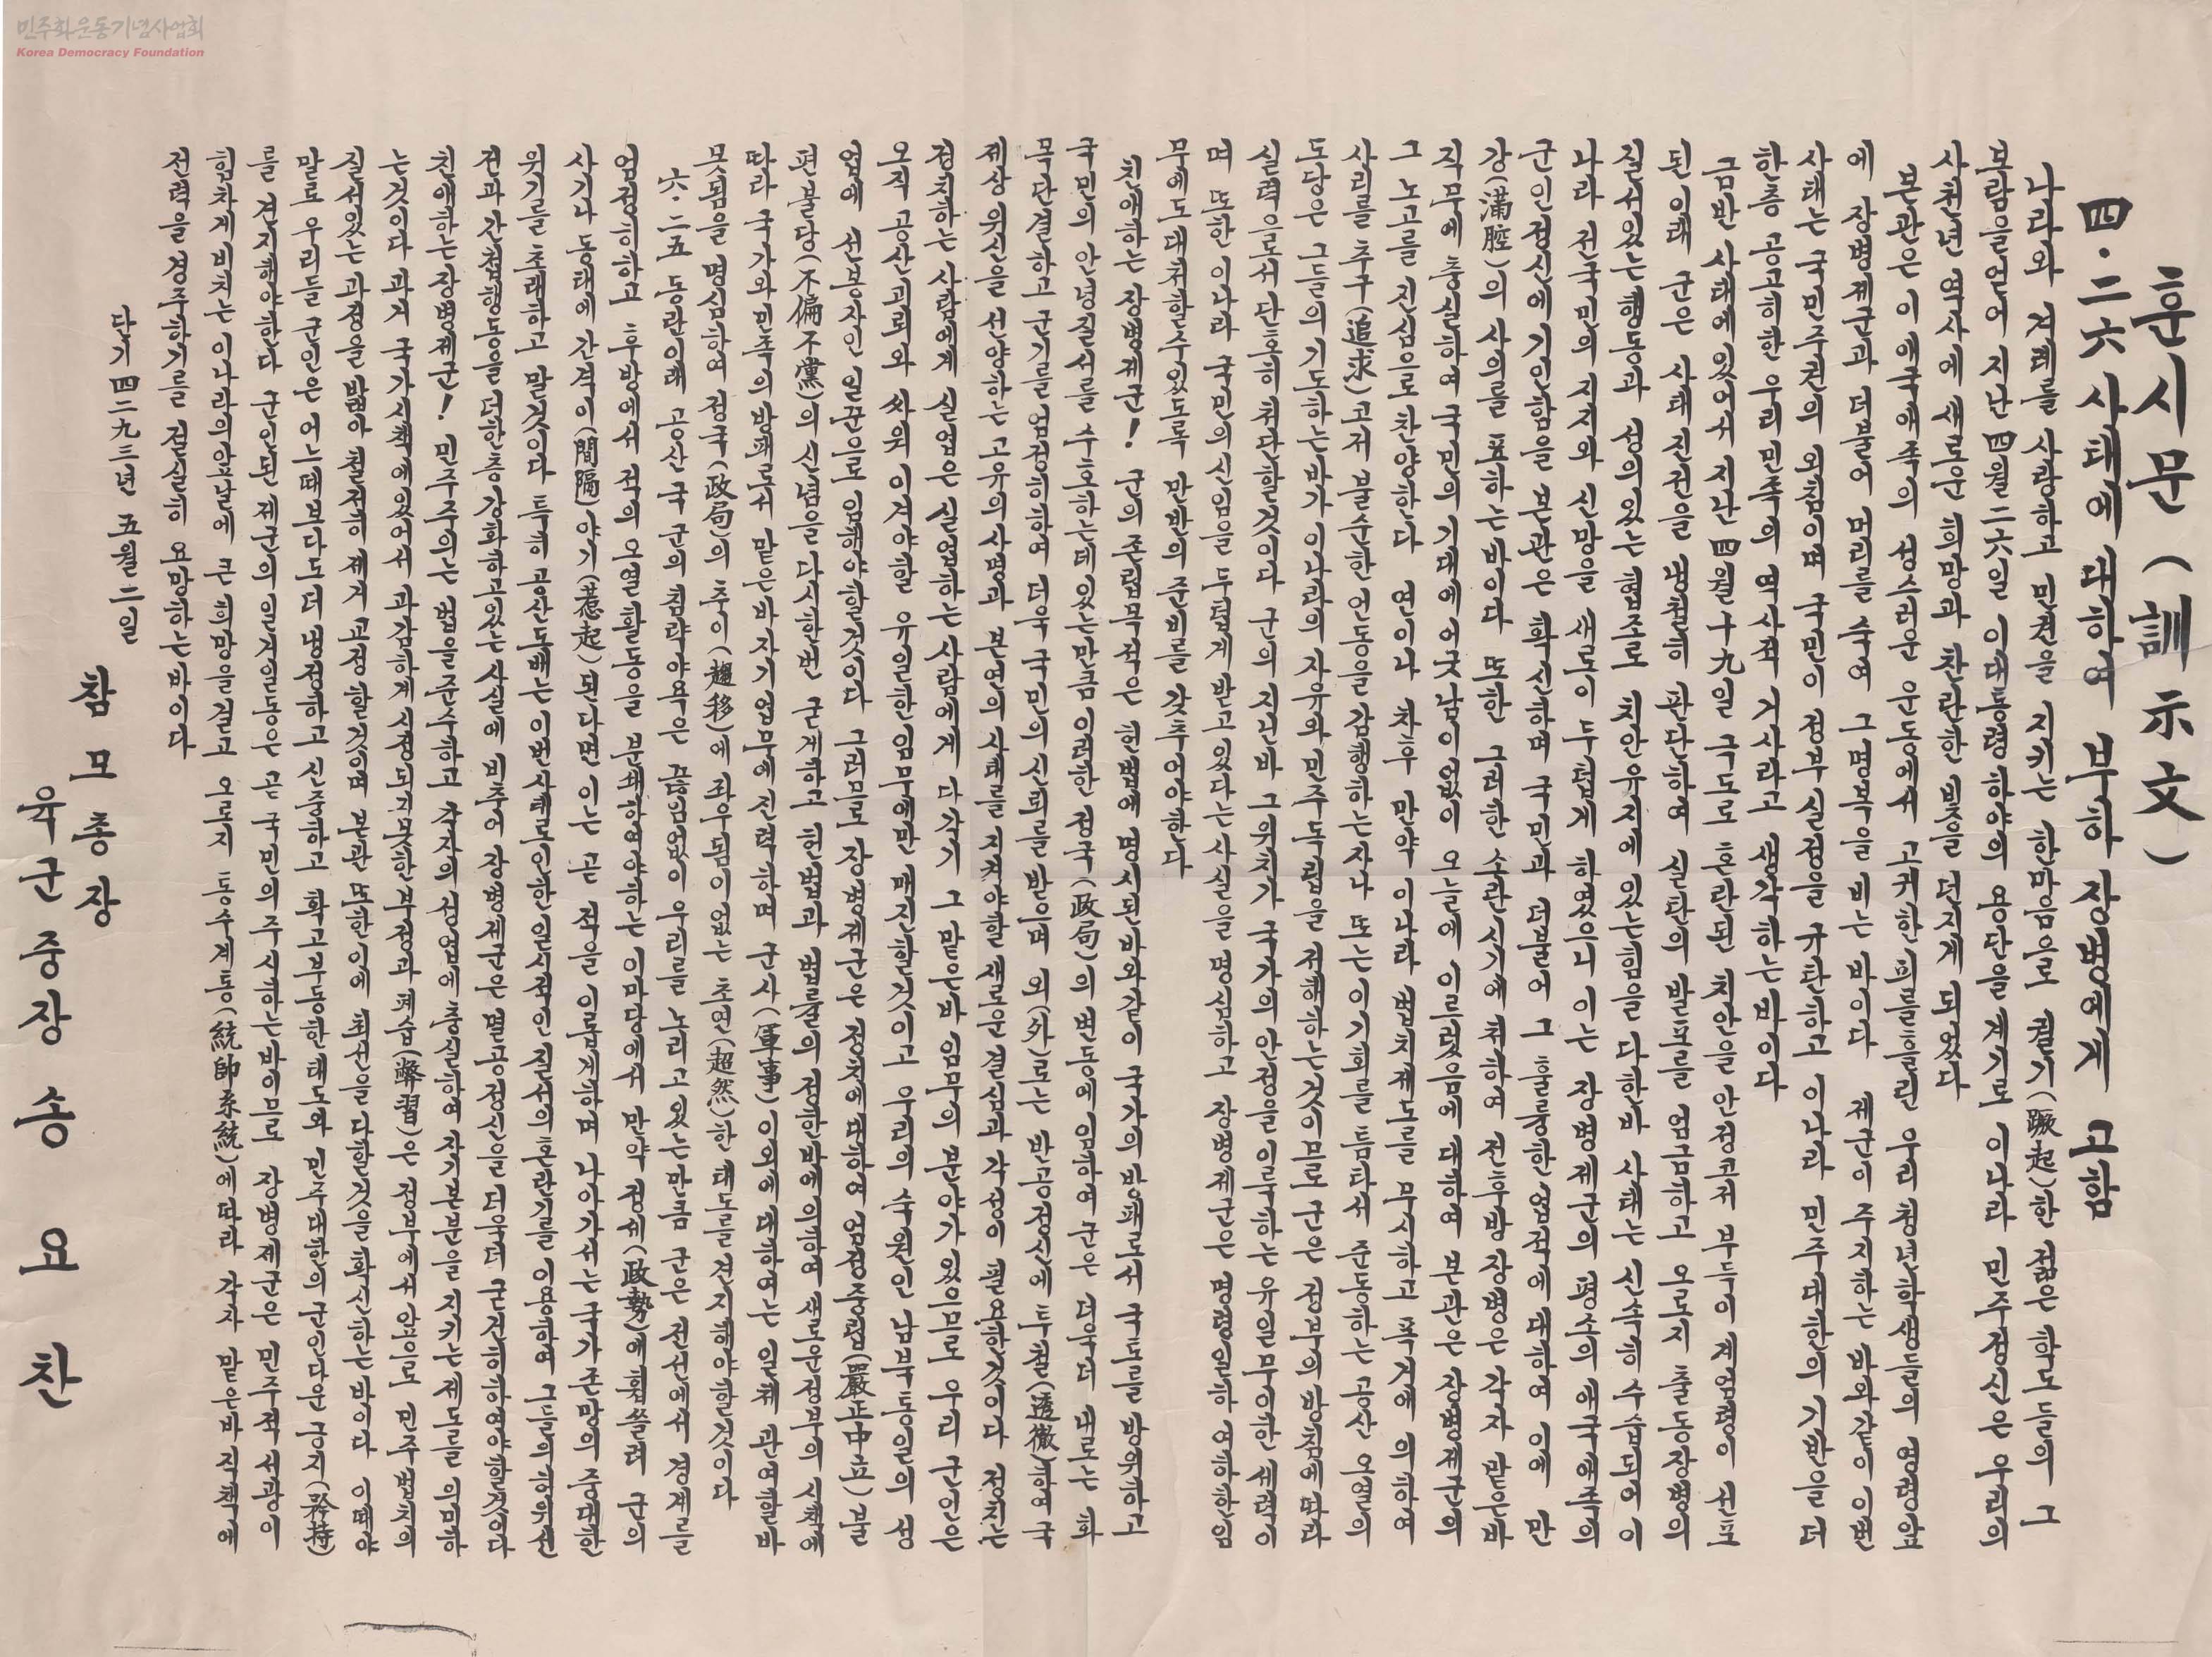 민주화운동기념사업회
Korea Democracy Foundation
훈시문(訓示文)
四·二六사태에 대하여 부하 장병에게 고함
나라와 겨레를 사랑하고 민권을 지키는 한마음으로 궐기(蹶起)한 젊은 학도들의 그
보람을얻어 지난 四월二六일 이대통령 하야의 영단을 계기로 이나라 민주정신은 우리의
사천년 역사에 새로운 희망과 찬란한 빛을 던지게 되었다
본관은 이 애국애족의 성스러운 운동에서 고귀한 피를흘린 우리 청년학생들의 영령앞
에 장병제군과 더불어 머리를 숙여 그 명복을 비는 바이다 제군이 주지하는 바와같이 이번
사태는 국민주권의 외침이며 국민이 정부 실정을 규탄하고 이나라 민주대한의 기반을 더
한층 공고히한 우리민족의 역사적 거사라고 생각하는바이다
금반 사태에 있어서 지난 四월十九일 극도로 혼란된 치안을 안정코저 부득이 계엄령이 선포
된 이래 군은 사태 진전을 냉철히 판단하여 발포를 엄금하고 오로지 출동장병의
질서있는 행동과 성의있는 협조로 치안유지에 있는힘을 다한바 사태는 신속히 수습되어 이
나라 전국민의 지지와 신망을 새로이 두텁게 하였으니 이는 장병제군의 평소의 애국애족의
군인정신에 기인함을 본관은 확신하며 국민과 더불어 그 훌륭한 업적에 대하여 이에 만
강(滿腔)의 사의를 표하는바이다 또한 그러한 소란시기에 제하여 전후방 장병은 각자 맡은바
직무에 충실하여 국민의 기대에 어긋남이없이 오늘에 이르렀음에 대하여 본관은 장병제군의
그 노고를 진심으로 찬양한다 연이나 차후 만약 이나라 법치제도를 무시하고 폭거에 의하여
사리를 추구(追求)코저 불순한 언동을 감행하는자나 또는 이기회를 틈타서 준동하는 공산 오열의
도당은 그들의 기도하는바가 이나라의 자유와 민주 독립을 저해하는것이므로 군은 정부의 방침에 따라
실력으로서 단호히 처단할것이다 군의 지난바 그위치가 국가의 안정을 이룩하는 유일무이한 세력이
며 또한 이나라 국민의 신임을 두텁게 받고 있다는 사실을 명심하고 장병제군은 명령일하 여하한임
무에도 대처할수있도록 만반의 준비를 갖추어야한다
친애하는 장병제군! 군의 존립목적은 헌법에 명시된바와같이 국가의 방패로서 국토를 방위하고
국민의 안녕질서를 수호하는데 있는만큼 이러한 정국(政局)의 변동에 임하여 군은 더욱더 대로는 화
목단결하고 군기를 엄정히하여 더욱 국민의 신뢰를 받으며 외(外)로는 반공정신에 투철(透徹)하여 국
제상 위신을 선양하는 고유의 사명과 본연의 자태를 지켜야할 새로운 결심과 각성이 필요한것이다 정치는
정치하는 사람에게 실업은 실업하는 사람에게 다각기 그 맡은바 임무의 분야가 있으므로 우리 군인은
오직 공산괴뢰와 싸워 이겨야할 유일한 임무에만 매진할것이고 우리의 숙원인 남북통일의 성
업에 선봉자인 일꾼으로 임해야할것이다 그러므로 장병제군은 정쟁에 대하여 엄정중립(嚴正中立) 불
편불당(不偏不黨)의 신념을 다시한번 굳게하고 헌법과 법률의 정한바에 의하여 새로운정부의 시책에
따라 국가와민족의 방패로서 맡은바 자기업무에 진력하며 군사(軍事)이외에 대하여는 일체 관여할바
못됨을 명심하여 정국(政局)의 추이(趨移)에 좌우됨이 없는 초연(超然)한 태도를 견지해야할것이다
六·二五 동란이래 공산 군의 침략야욕은 끊임없이 우리를 노리고 있는만큼 군은 전선에서 경계를
엄정히하고 후방에서 적의 오열활동을 분쇄하여야하는 이마당에서 만약 정세(政勢)에 휩쓸려 군의
사기나 동태에 간격의(間隔)야기(惹起)된다면 이는 곧 적을 이롭게하며 나아가서는 국가존망의 중대한
위기를 초래하고 말것이다 특히 공산도배는 이번사태로인한 일시적인 질서의혼란기를 이용하여 그들의 허위선
전과 간첩행동을 더한층 강화하고있는 사실에 비추어 장병제군은 멸공정신을 더욱더 굳건히하여야할것이다
친애하는장병제군! 민주주의는 법을준수하고 각자의 생업에 충실하여 자기본분을 지키는 제도를 의미하
는것이다 과거 국가시책에있어서 과감하게 시정되지못한부정과 폐습(弊習)은 정부에서 앞으로 민주 법치의
질서있는 과정을 밟아 철저히 제거 교정할것이며 본관 또한이에 최선을 다할것을 확신하는 바이다 이때야
말로 우리들 군인은 어느때보다도더 냉정하고 신중하고 확고부동한태도와 민주대한의 군인다운 긍지(矜持)
를 견지해야한다 군인된 제군의 일거일동은 곧 국민의주시하는바이므로 장병제군은 민주적 서광이
힘차게비치는 이나라의앞날에 큰 희망을걸고 오로지 통수계통(統帥系統)에따라 각자 맡은바 직책에
전력을 경주하기를 절실히 요망하는바이다
단기四二九三년 五월二일
참모총장
육군중장 송요찬